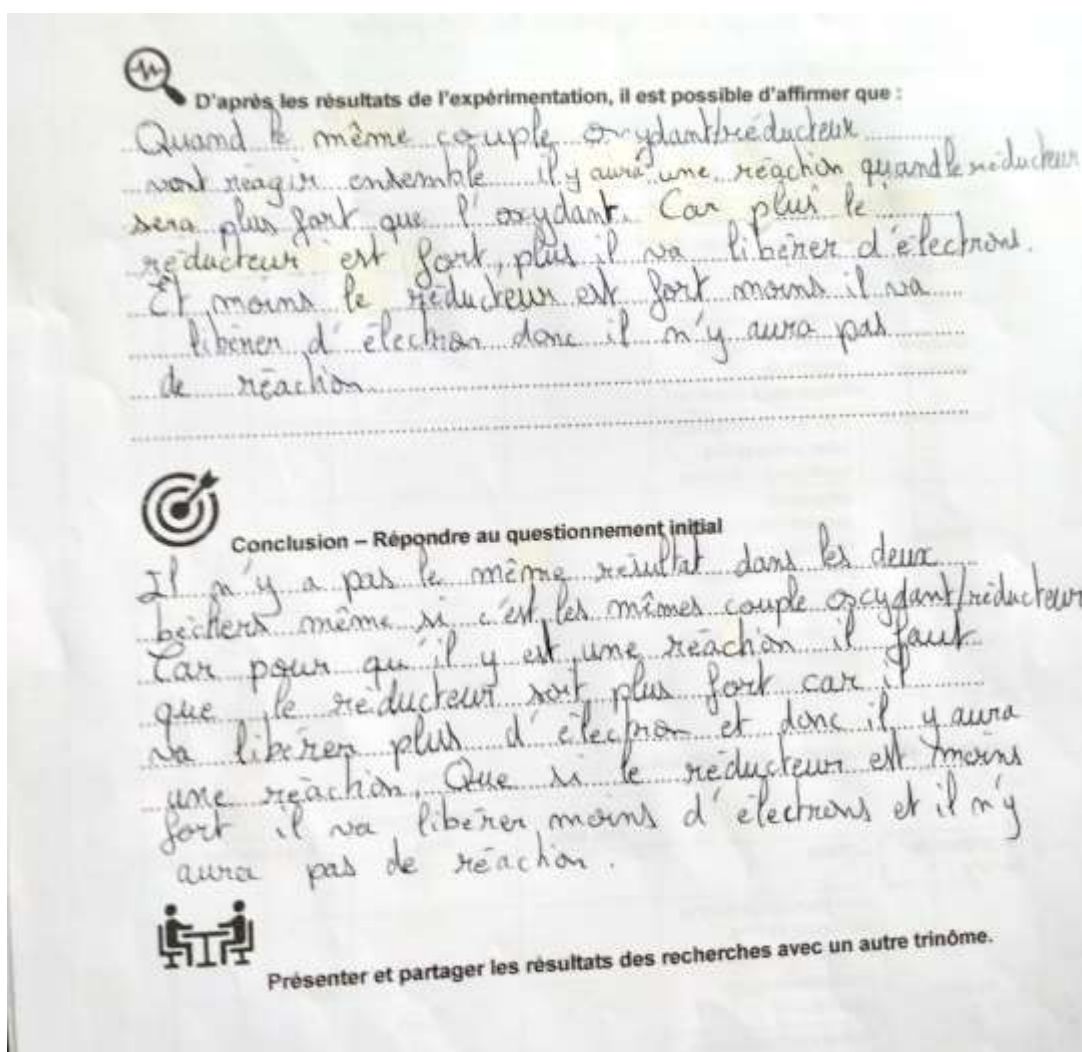 D'après les résultats de l'expérimentation, il est possible d'affirmer que :
Quand le même couple oxydant/réducteur
vont réagir ensemble il y aura une réaction quand le réducteur
sera plus fort que l'oxydant. Car plus le
réducteur est fort, plus il va libérer d'électrons.
Et moins le réducteur est fort moins il va
libérer d'électron donc il n'y aura pas
de réaction
Conclusion – Répondre au questionnement initial
Il n'y a pas le même résultat dans les deux
béchers même si c'est les mêmes couple oxcydant/réducteur
Car pour qu'il y est une réaction il faut
que le réducteur soit plus fort car il
va libérer plus d'électron et donc il y aura
une réaction. Que si le réducteur est moins
fort il va libérer moins d'électrons et il n'y
aura pas de réaction.
Présenter et partager les résultats des recherches avec un autre trinôme.